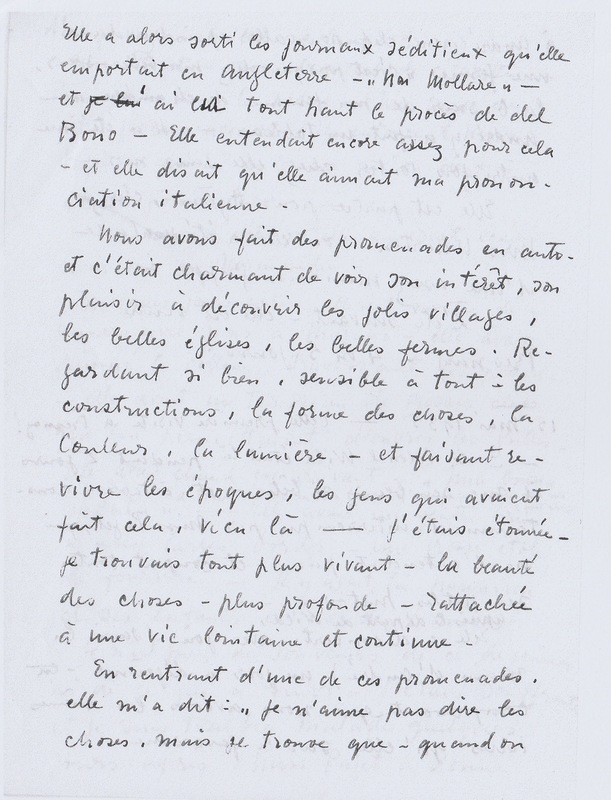 Elle a alors sorti les journaux séditieux qu'elle
emportait en Angleterre - „Non Mollare" -
et ~~je lui~~ ai lu tout haut le procès de del
Bono - Elle entendait encore assez pour cela
- et elle disait qu'elle aimait ma pronon-
ciation italienne -
Nous avons fait des promenades en auto-
et c'était charmant de voir son intérêt, son
plaisir à découvrir les jolis villages,
les belles églises, les belles fermes. Re-
gardant si bien, sensible à tout : les
constructions, la forme des choses, la
couleur, la lumière - et faisant re-
vivre les époques, les gens qui avaient
fait cela, vécu là — J'étais étonnée -
je trouvais tout plus vivant - la beauté
des choses - plus profonde - rattachée
à une vie lointaine et continue -
En rentrant d'une de ces promenades.
elle m'a dit : „ Je n'aime pas dire les
choses. mais je trouve que - quand on